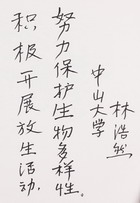 积极开展放生活动,
努力保护生物多样性。
中山大学
林浩然